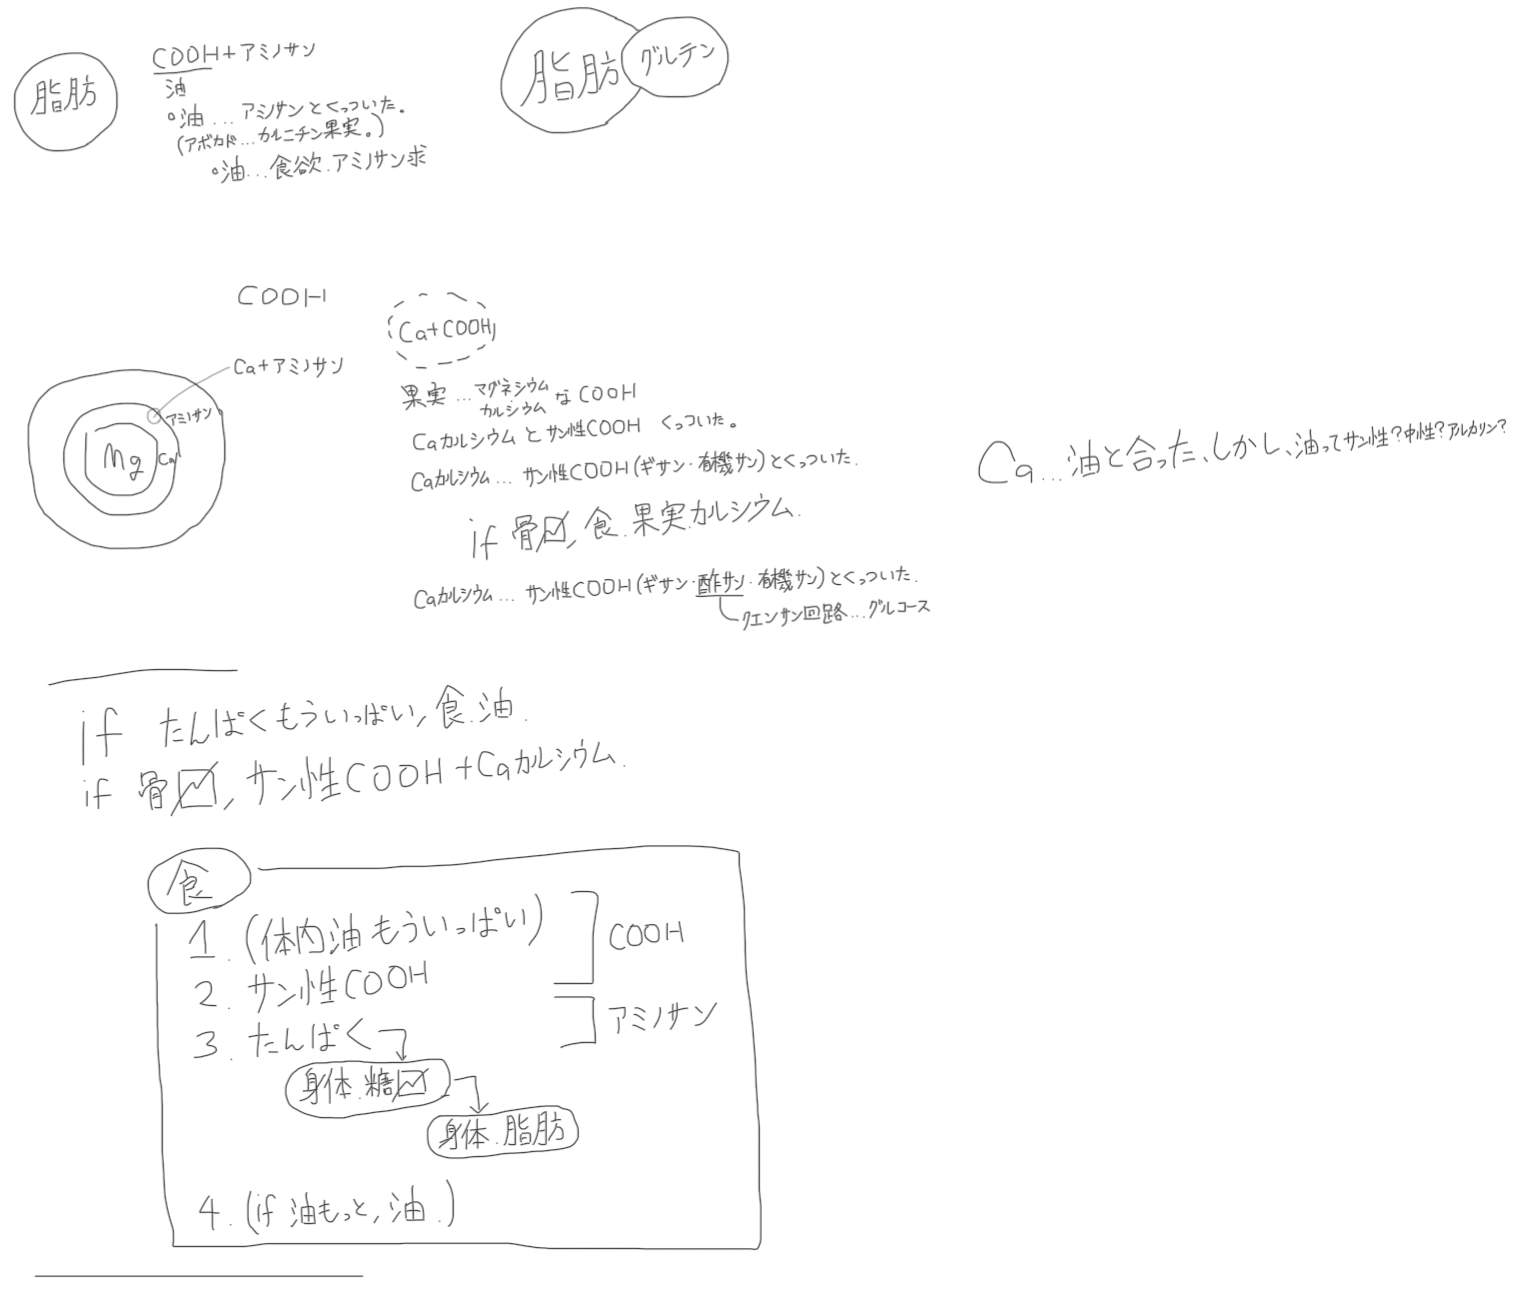 脂肪
COOH+アミノサン
油
°油...アミノサンとくっついた。
(アボカド...カルニチン果実。)
°油...食欲.アミノサン求
脂肪
グルテン
COOH
Ca+COOH
Ca+アミノサン
アミノサン
Mg
Ca
果実...マグネシウム
カルシウム なCOOH
Caカルシウムとサン性COOH くっついた。
Caカルシウム...サン性COOH(ギサン・有機サン)とくっついた.
if 骨, 食.果実.カルシウム.
Caカルシウム...サン性COOH(ギサン・酢サン・有機サン)とくっついた.
クエンサン回路...グルコース
Ca...油と合った、しかし、油ってサン性?中性?アルカリン?
if たんぱくもういっぱい, 食.油.
if 骨, サン性COOH+Caカルシウム.
食
1. (体内油もういっぱい)
COOH
2. サン性COOH
3. たんぱく
アミノサン
身体.糖
身体.脂肪
4. (if 油もっと, 油.)